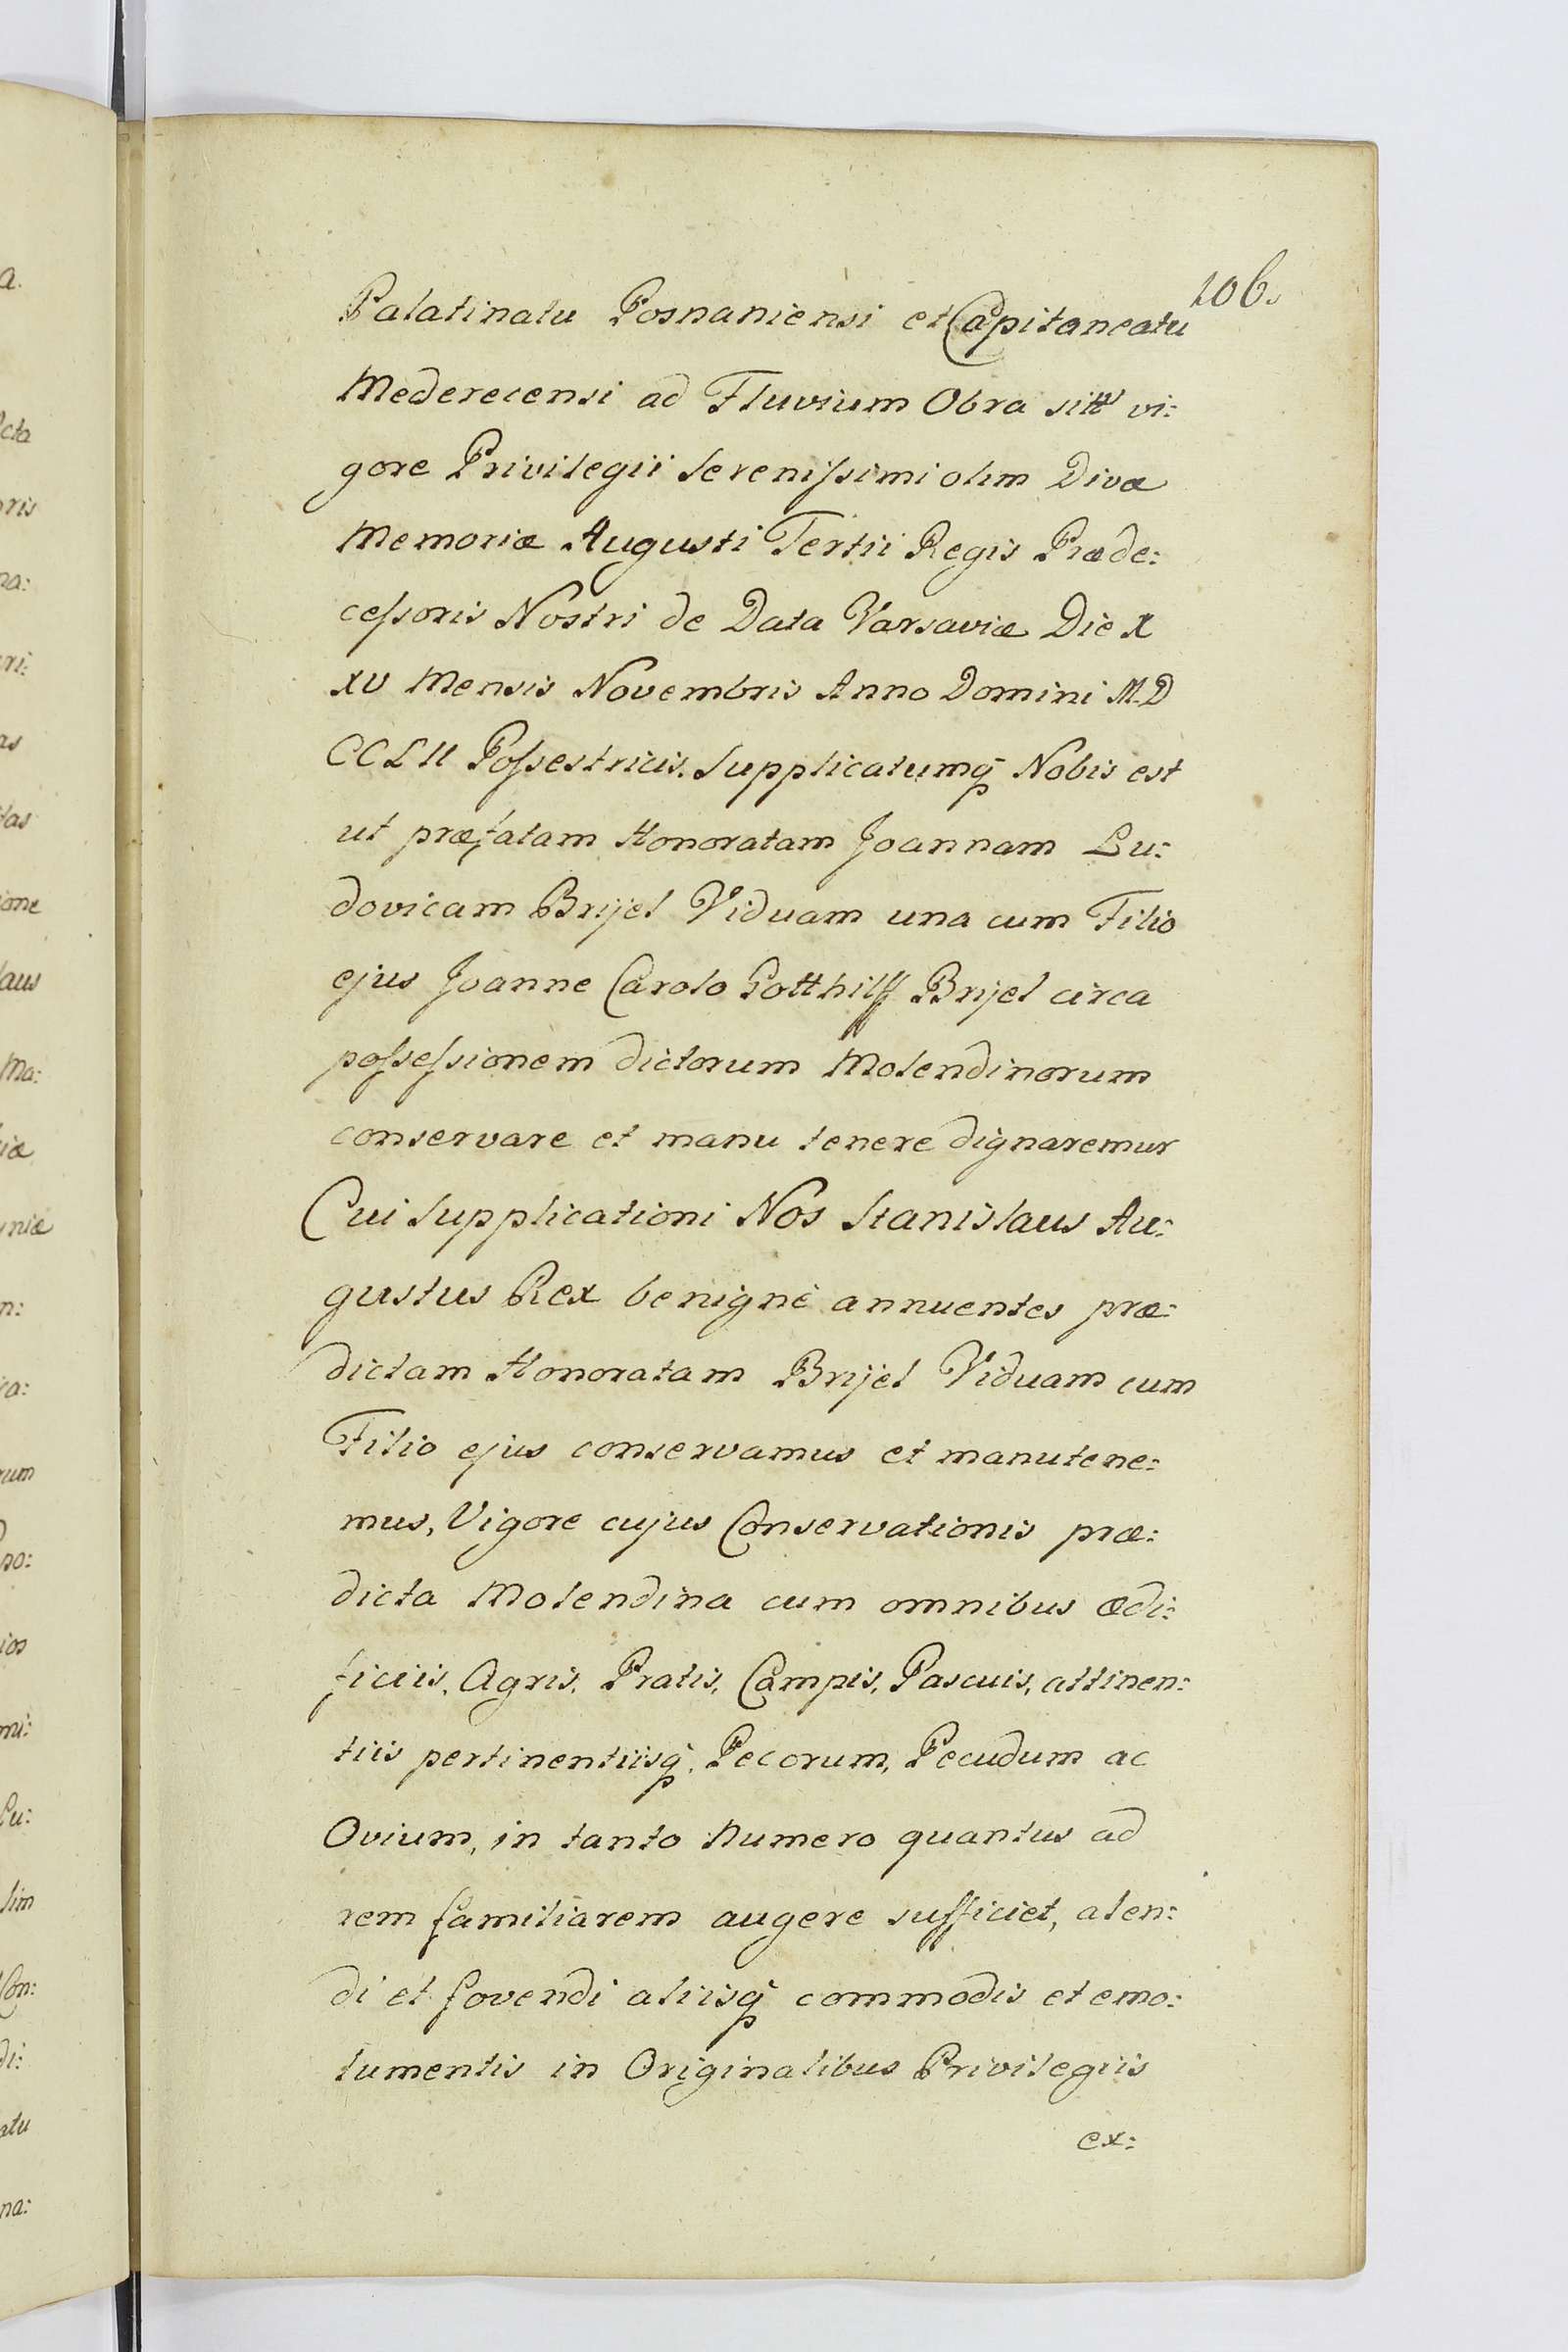 106.
Palatinatu Posnaniensi et Capitaneatu
Mederecensi ad Fluvium Obra sitt vi:
gore Privilegii Serenißimi olim Divæ
Memoriæ Augusti Tertii Regis Præde:
ceßoris Nostri de Data Varsaviæ Die X
XV Mensis Novembris Anno Domini M.D
CCLII Poßestricis. Supplicatumq Nobis est
ut præfatam Honoratam Joannam Lu:
dovicam Brijel Viduam una cum Filio
ejus Joanne Carolo Gotthilff Brijel circa
poßeßionem dictorum Molendinorum
conservare et manu tenere dignaremur
Cui Supplicationi Nos Stanislaus Au:
gustus Rex benignè annuentes præ:
dictam Honoratam Brijel Viduam cum
Filio ejus conservamus et manutene:
mus, Vigore cujus Conservationis præ:
dicta Molendina cum omnibus ædi:
ficiis, Agris, Pratis, Campis, Pascuis, attinen:
tiis pertinentiisq, Pecorum, Pecudum ac
Ovium, in tanto Numero quantus ad
rem familiarem augere sufficiet, alen:
di et fovendi aliisq commodis et emo:
lumentis in Originalibus Privilegiis
ex: